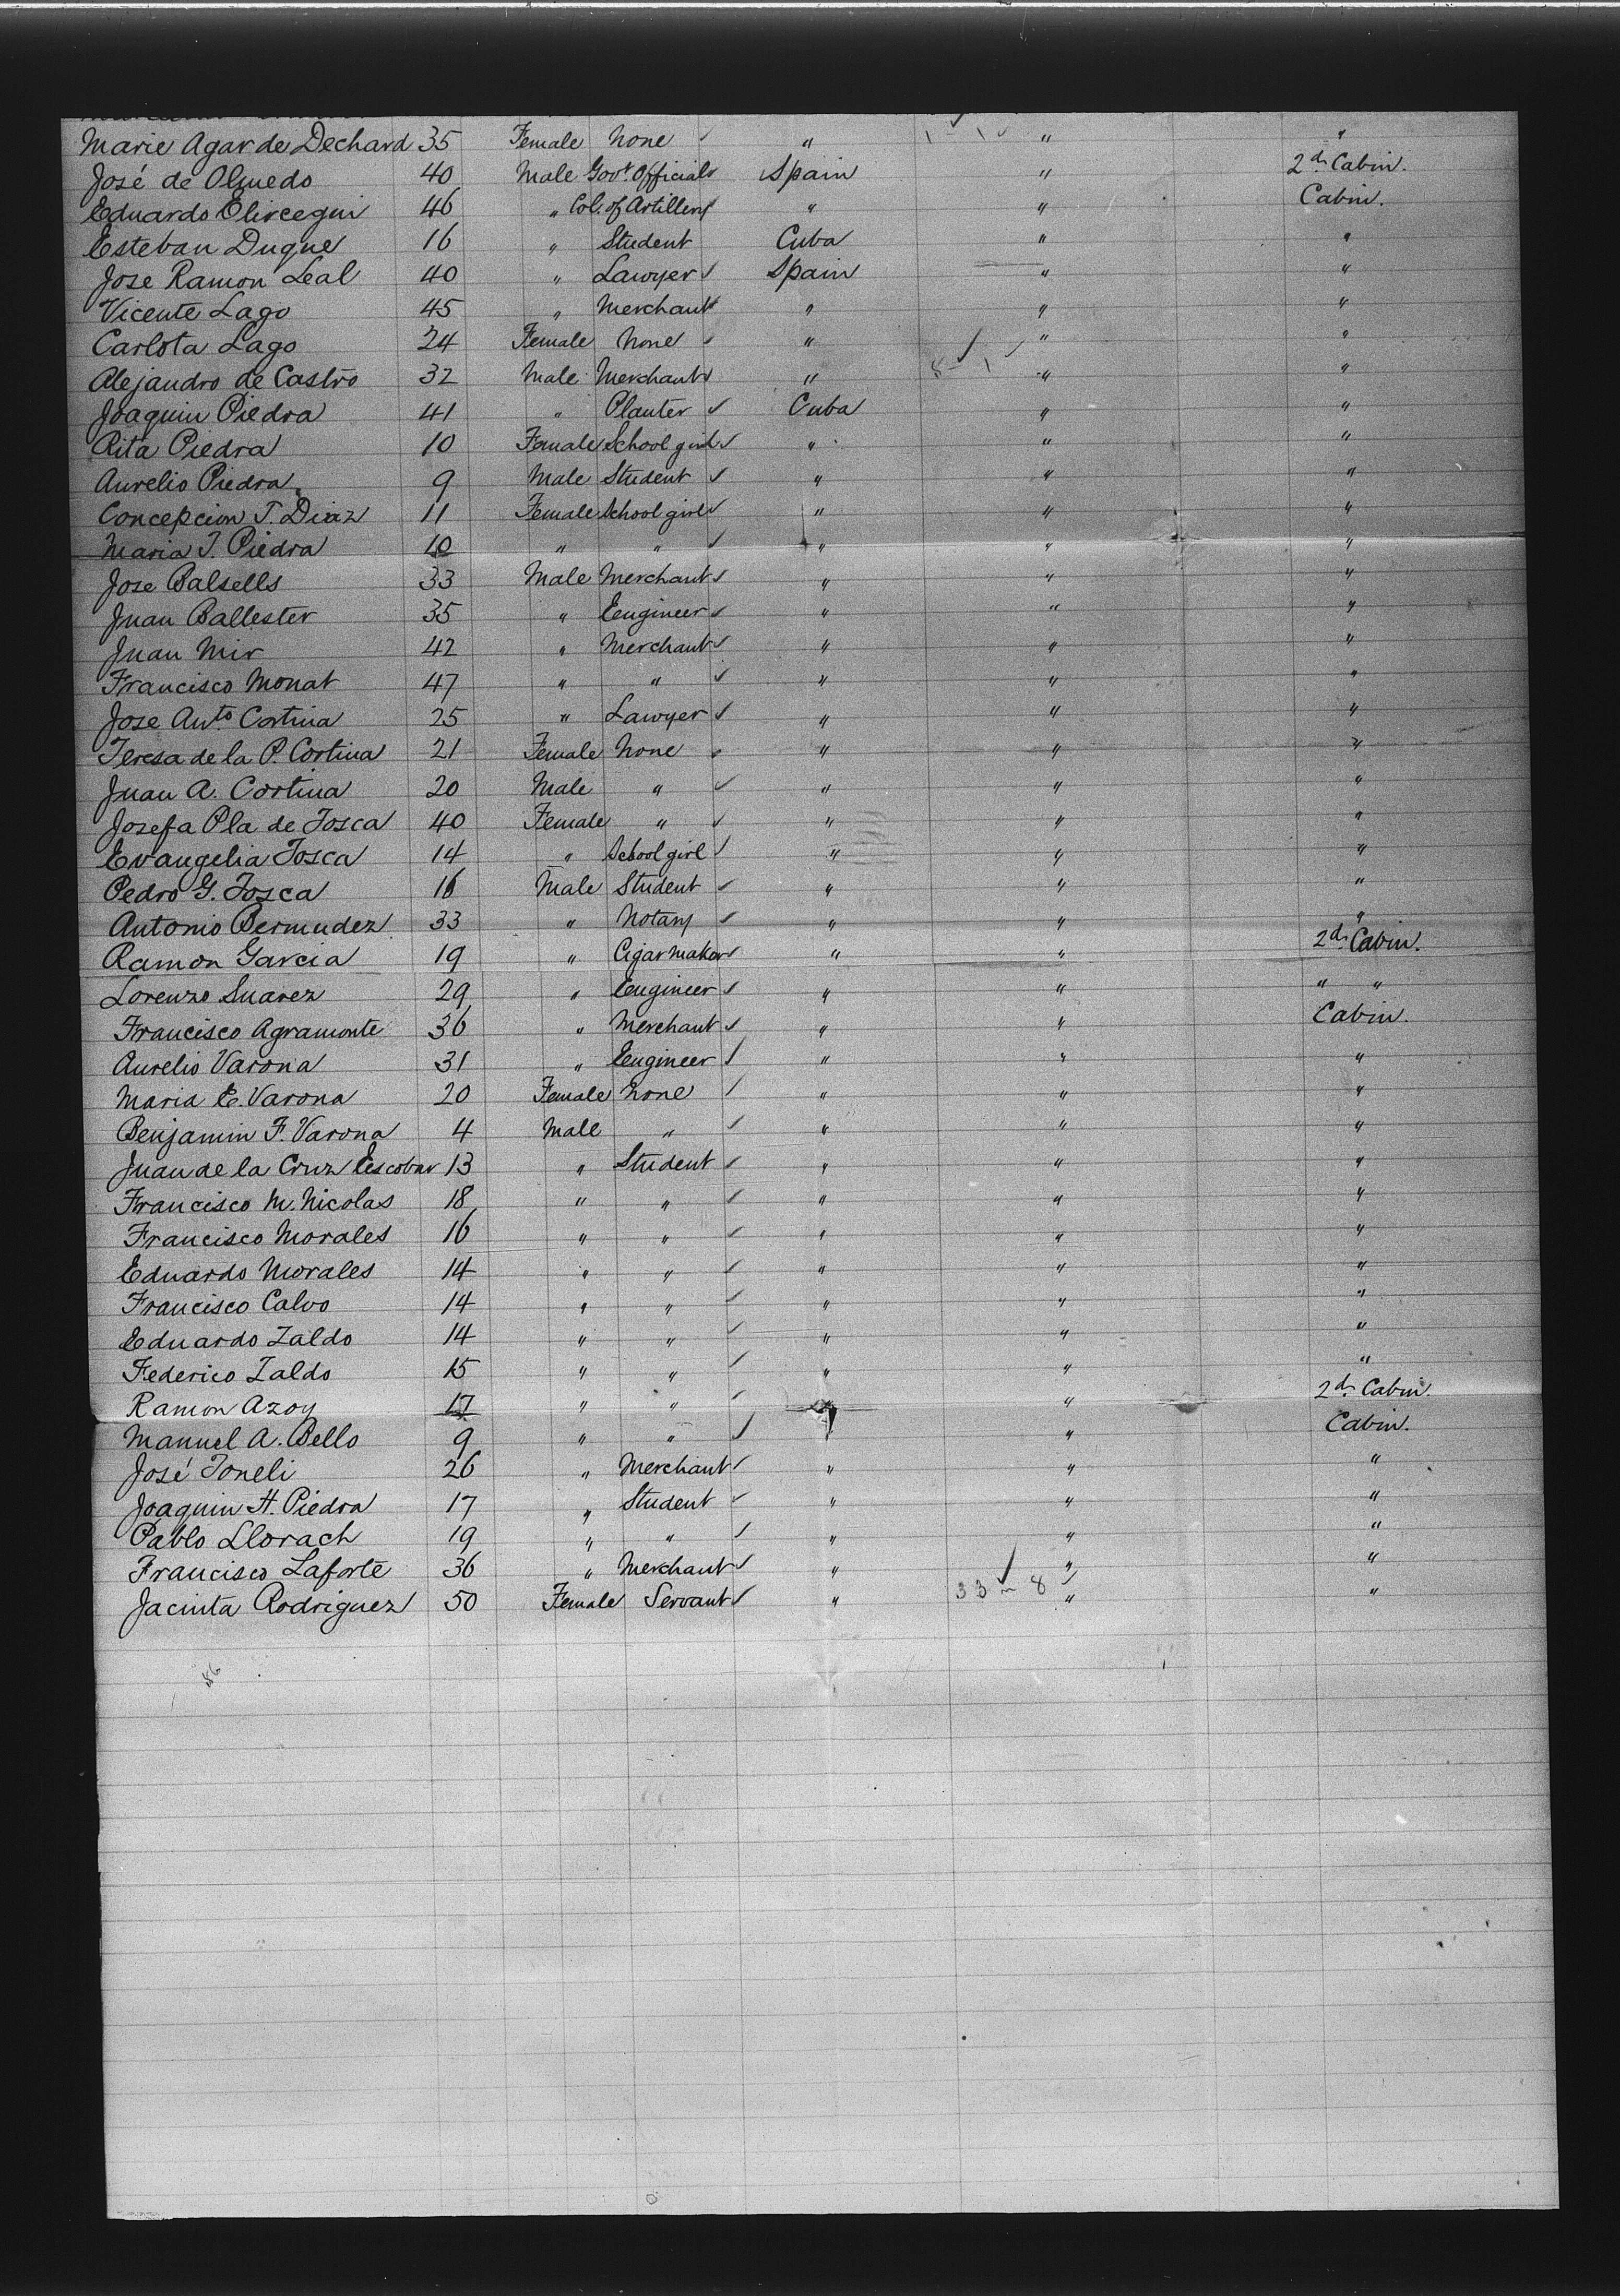 Marie Agar de Dechard 35 Female None " 1 - 1 " "
José de Olmedo 40 Male Govt. Official Spain " 2d. Cabin.
Eduardo Elircegui 46 " Col. of Artillery " " Cabin.
Esteban Duque 16 " Student Cuba " "
Jose Ramon Leal 40 " Lawyer Spain " "
Vicente Lago 45 " Merchant " " "
Carlota Lago 24 Female None " " "
Alejandro de Castro 32 Male Merchant " 8 - 1 " "
Joaquin Piedra 41 " Planter Cuba " "
Rita Piedra 10 Female School girl " " "
Aurelio Piedra 9 Male Student " " "
Concepcion T. Diaz 11 Female School girl " " "
Maria T. Piedra 10 " " " " "
Jose Balsells 33 Male Merchant " " "
Juan Ballester 35 " Engineer " " "
Juan Mir 42 " Merchant " " "
Francisco Monat 47 " " " " "
Jose Anto. Cortina 25 " Lawyer " " "
Teresa de la P. Cortina 21 Female None " " "
Juan A. Cortina 20 Male " " " "
Josefa Pla de Tosca 40 Female " " " "
Evangelia Tosca 14 " School girl " " "
Pedro G. Tosca 16 Male Student " " "
Antonio Bermudez 33 " Notary " " "
Ramon Garcia 19 " Cigar maker " " 2d. Cabin.
Lorenzo Suarez 29 " Engineer " " " "
Francisco Agramonte 36 " Merchant " " Cabin.
Aurelio Varona 31 " Engineer " " "
Maria E. Varona 20 Female None " " "
Benjamin F. Varona 4 Male " " " "
Juan de la Cruz Escobar 13 " Student " " "
Francisco M. Nicolas 18 " " " " "
Francisco Morales 16 " " " " "
Eduardo Morales 14 " " " " "
Francisco Calvo 14 " " " " "
Eduardo Zaldo 14 " " " " "
Federico Zaldo 15 " " " " "
Ramon Azoy 17 " " " " 2d. Cabin.
Manuel A. Bello 9 " " " " Cabin.
José Toneli 26 " Merchant " " "
Joaquin H. Piedra 17 " Student " " "
Pablo Llorach 19 " " " " "
Francisco Laforte 36 " Merchant " " "
Jacinta Rodriguez 50 Female Servant " 33 - 8 " "